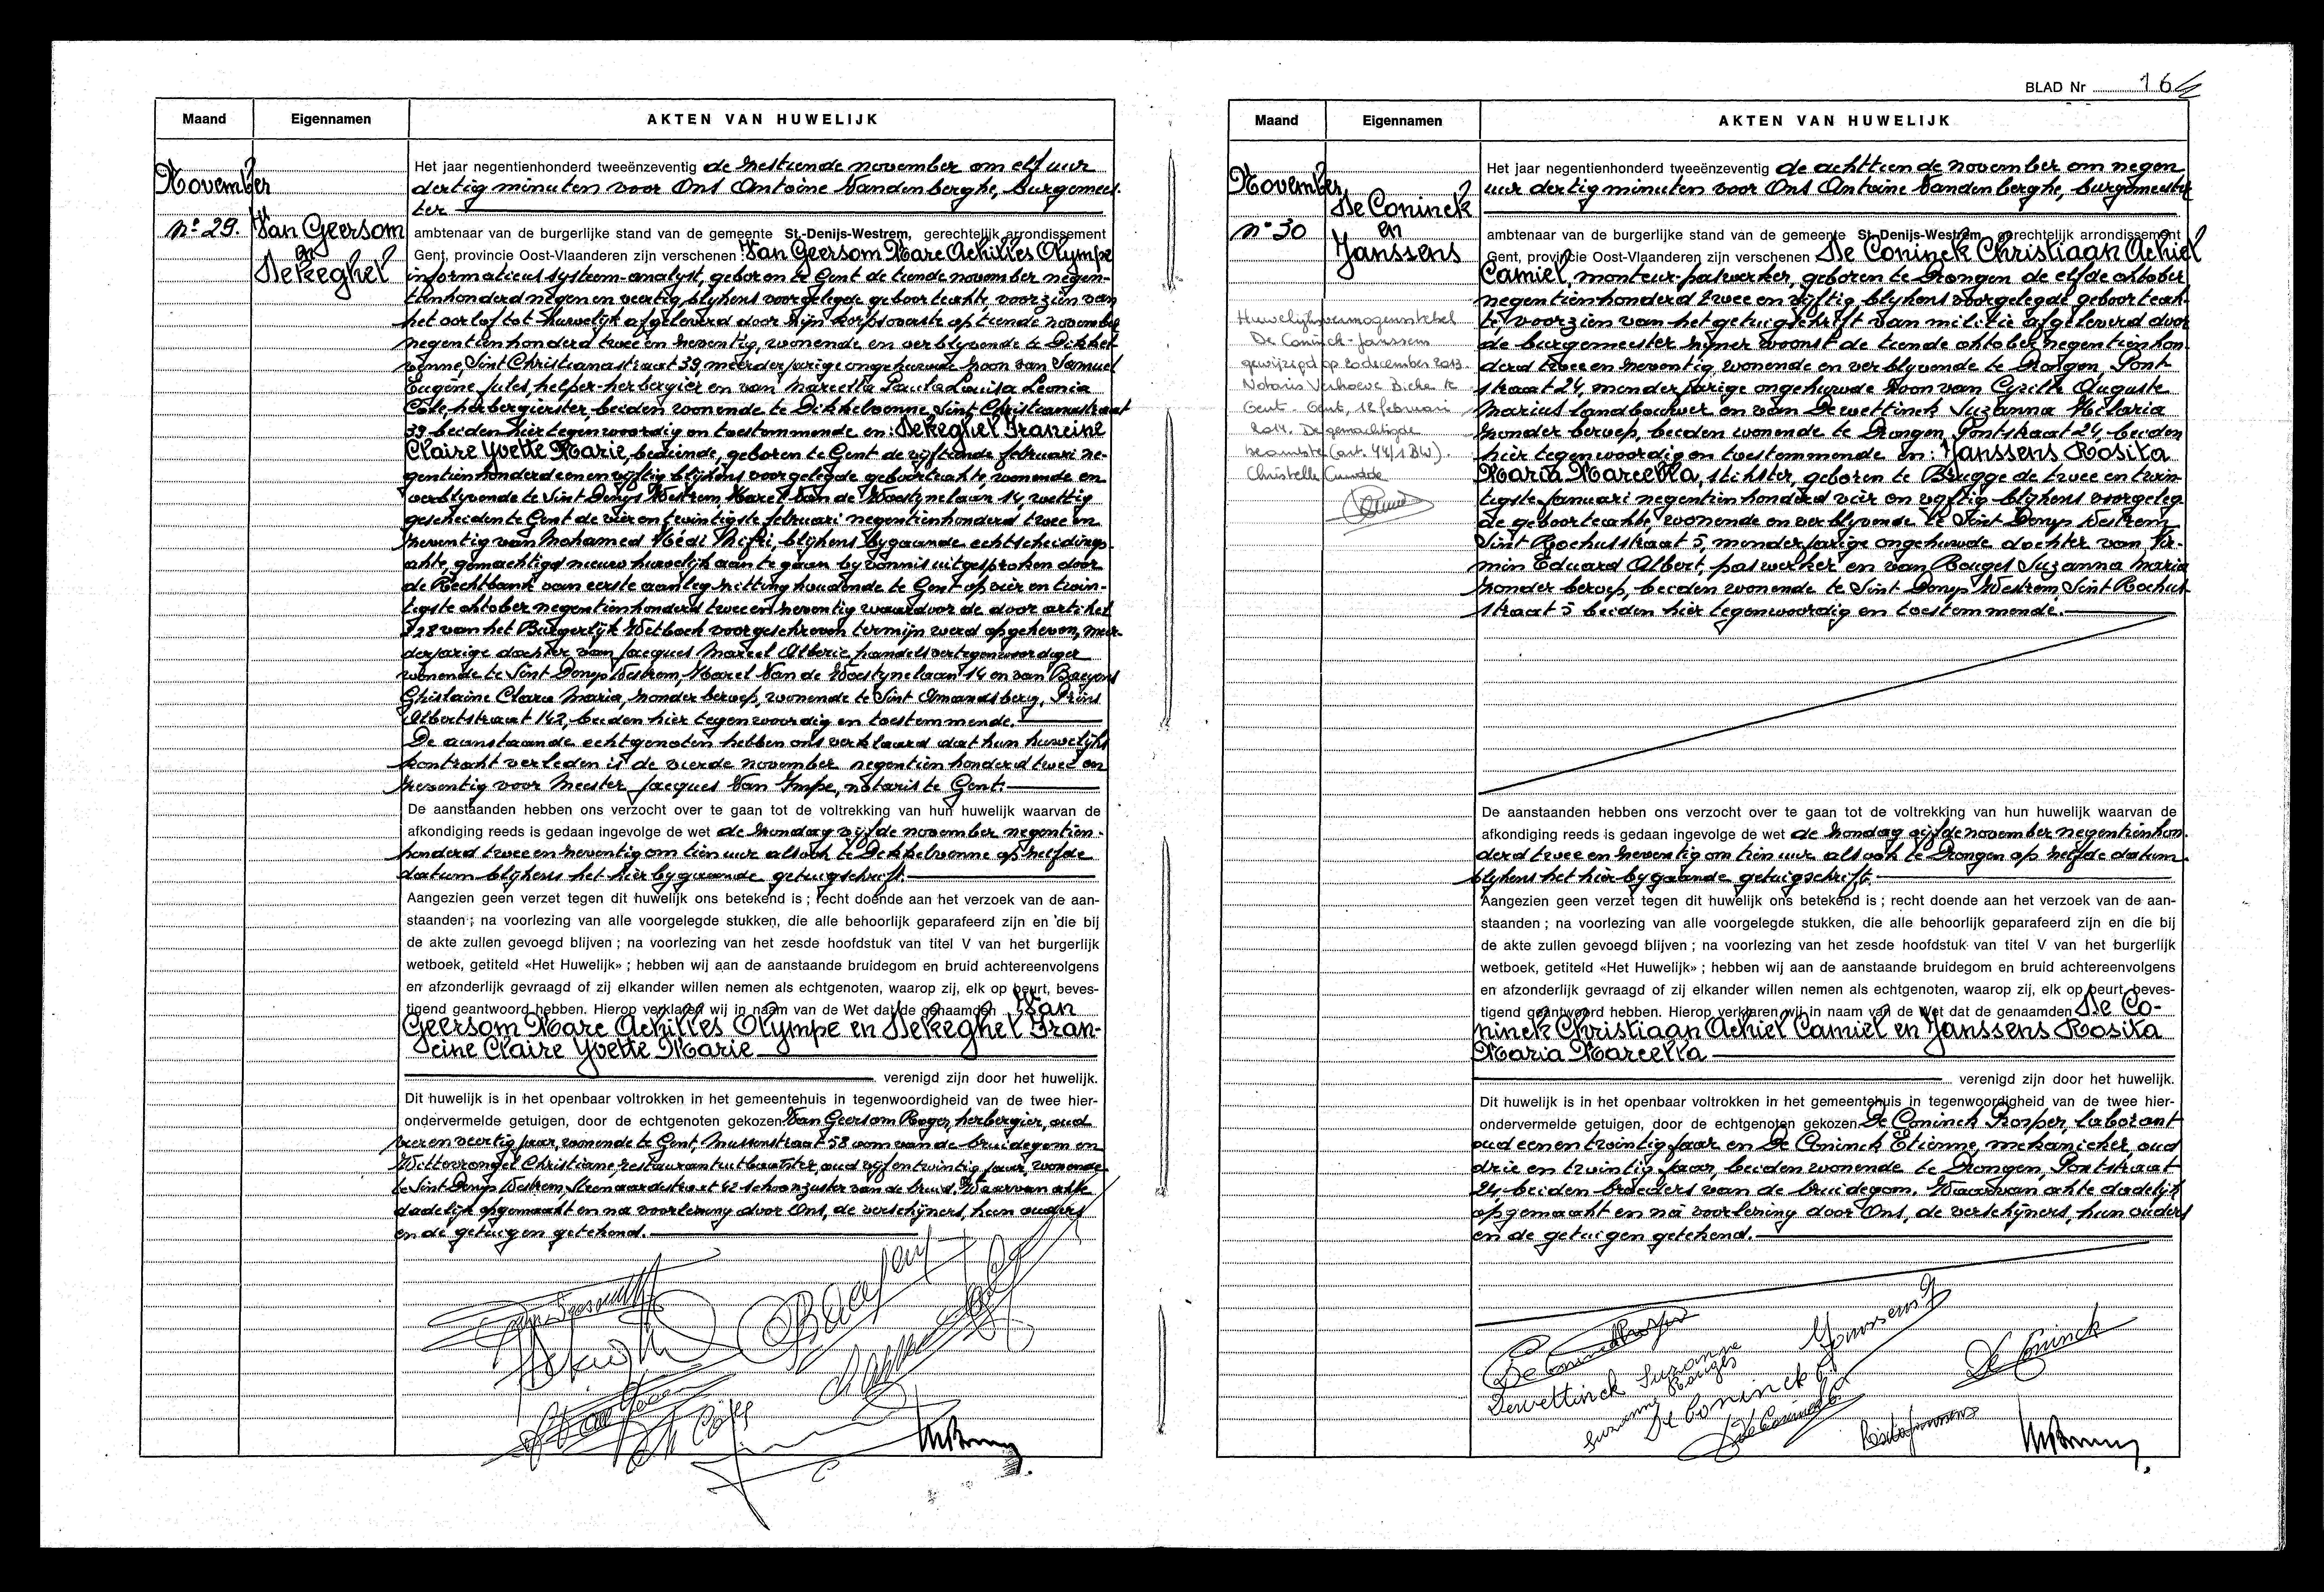 Maand
Eigennamen
AKTEN VAN HUWELIJK
November
n° 29.
Van Geersom
en
Dekeghel
Het jaar negentienhonderd tweeënzeventig de zestiende november om elf uur
dertig minuten voor Ons Antoine Vandenberghe, burgemees-
ter
ambtenaar van de burgerlijke stand van de gemeente St-Denijs-Westrem, gerechtelijk arrondissement
Gent, provincie Oost-Vlaanderen zijn verschenen : Van Geersom Marc Achilles Olympe
informaticus system-analyst, geboren te Gent de tiende november negen-
tienhonderd negen en veertig, blijkens voorgelegde geboorteakte, voorzien van
het oorlof tot huwelijk afgeleverd door zijn korpsoverste op tiende november
negentienhonderd twee en zeventig, wonende en verblyvende te Dikkel-
venne, Sint Christianastraat 39, meerderjarige ongehuwde zoon van Samuel
Eugène Jules, helper-herbergier en van Marcella Paula Louisa Leonia
Cole, herbergierster, beiden wonende te Dikkelvenne, Sint Christianastraat
39 beiden hier tegenwoordig en toestemmende en: Dekeghel Francine
Claire Yvette Marie, bediende, geboren te Gent de vijftiende februari ne-
gentienhonderd een en vijftig blijkens voorgelegde geboorteakte, wonende en
verblyvende te Sint Denys Westrem, Karel Van de Woestynelaan 14, wettig
gescheiden te Gent de vier en twintigste februari negentienhonderd twee en
zeventig van Mohamed Hédi blijkens bygaande echtscheidings-
akte, gemachtigd nieuw huwelijk aan te gaan by vonnis uitgesproken door
de Rechtbank van eerste aanleg zitting houdende te Gent op vier en twin-
tigste oktober negentienhonderd twee en zeventig waardoor de door artikel
228 van het Burgerlijk Wetboek voorgeschreven termijn werd opgeheven, meer-
derjarige dochter van Jacques Marcel Alberic handelsvertegenwoordiger
wonende te Sint Denys Westrem, Karel Van de Woestynelaan 14 en van Baeyens
Ghislaine Clara Maria, zonder beroep, wonende te Sint Amandsberg, Prins
Albertstraat 142, beiden hier tegenwoordig en toestemmende.
De aanstaande echtgenoten hebben ons verklaard dat hun huwelijks
kontrakt verleden is de vierde november negentienhonderd twee en
zeventig voor Meester Jacques Van Impe, notaris te Gent.
De aanstaanden hebben ons verzocht over te gaan tot de voltrekking van hun huwelijk waarvan de
afkondiging reeds is gedaan ingevolge de wet de zondag vijfde november negentien-
honderd twee en zeventig om tien uur alsook te Dikkelvenne op zelfde
datum blijkens het hier bygaande getuigschrift.
Aangezien geen verzet tegen dit huwelijk ons betekend is ; recht doende aan het verzoek van de aan-
staanden ; na voorlezing van alle voorgelegde stukken, die alle behoorlijk geparafeerd zijn en die bij
de akte zullen gevoegd blijven ; na voorlezing van het zesde hoofdstuk van titel V van het burgerlijk
wetboek, getiteld «Het Huwelijk» ; hebben wij aan de aanstaande bruidegom en bruid achtereenvolgens
en afzonderlijk gevraagd of zij elkander willen nemen als echtgenoten, waarop zij, elk op beurt, beves-
tigend geantwoord hebben. Hierop verklaren wij in naam van de Wet dat de genaamden Van
Geersom Marc Achilles Olympe en Dekeghel Fran-
cine Claire Yvette Marie
verenigd zijn door het huwelijk.
Dit huwelijk is in het openbaar voltrokken in het gemeentehuis in tegenwoordigheid van de twee hier-
ondervermelde getuigen, door de echtgenoten gekozen Van Geersom Roger, herbergier, oud
vier en veertig jaar, wonende te Gent, Mussenstraat 58 oom van de bruidegom en
Wittevrongel Christiane, restaurantuitbaatster, oud vijf en twintig jaar, wonende
te Sint Denys Westrem, Steenaardestraat 42 schoonzuster van de bruid. Waarvan akte
dadelijk opgemaakt en na voorlezing door Ons, de verschijners, hun ouders
en de getuigen getekend.
BLAD Nr 16
Maand
Eigennamen
AKTEN VAN HUWELIJK
November
n° 30
De Coninck
en
Janssens
Huwelijksvermogensstelsel
De Coninck-Janssens
gewijzigd op 20 december 2013.
Notaris Verhoeve Bieke te
Gent. Gent, 12 februari
2014. De gemachtigde
beambte (art. 44/1 BW).
Christelle
Het jaar negentienhonderd tweeënzeventig de achttiende november om negen
uur dertig minuten voor Ons Antoine Vandenberghe, burgemeester
ambtenaar van de burgerlijke stand van de gemeente St-Denijs-Westrem, gerechtelijk arrondissement
Gent, provincie Oost-Vlaanderen zijn verschenen De Coninck Christiaan Achiel
Camiel, monteur-paswerker, geboren te Drongen de elfde oktober
negentienhonderd twee en vijftig, blijkens voorgelegde geboorteak-
te, voorzien van het getuigschrift van militie afgeleverd door
de burgemeester zijner woonst de tiende oktober negentienhon-
derd twee en zeventig, wonende en verblyvende te Drongen, Pont-
straat 24, minderjarige ongehuwde zoon van Cyrille Auguste
Marius landbouwer en van Dewettinck Suzanna Hilaria
zonder beroep, beiden wonende te Drongen, Pontstraat 24, beiden
hier tegenwoordig en toestemmende en: Janssens Rosita
Maria Marcella, stikster, geboren te Brugge de twee en twin-
tigste januari negentienhonderd vier en vyftig blijkens voorgeleg-
de geboorteakte, wonende en verblyvende te Sint Denys Westrem
Sint Rochusstraat 5, minderjarige ongehuwde dochter van Fir-
min Eduard Albert, paswerker en van Rouges Suzanna Maria
zonder beroep, beiden wonende te Sint Denys Westrem, Sint Rochus-
straat 5 beiden hier tegenwoordig en toestemmende.
De aanstaanden hebben ons verzocht over te gaan tot de voltrekking van hun huwelijk waarvan de
afkondiging reeds is gedaan ingevolge de wet de zondag vijfde november negentienhon-
derd twee en zeventig om tien uur alsook te Drongen op zelfde datum
blijkens het hier bygaande getuigschrift.
Aangezien geen verzet tegen dit huwelijk ons betekend is ; recht doende aan het verzoek van de aan-
staanden ; na voorlezing van alle voorgelegde stukken, die alle behoorlijk geparafeerd zijn en die bij
de akte zullen gevoegd blijven ; na voorlezing van het zesde hoofdstuk van titel V van het burgerlijk
wetboek, getiteld «Het Huwelijk» ; hebben wij aan de aanstaande bruidegom en bruid achtereenvolgens
en afzonderlijk gevraagd of zij elkander willen nemen als echtgenoten, waarop zij, elk op beurt, beves-
tigend geantwoord hebben. Hierop verklaren wij in naam van de Wet dat de genaamden De Co-
ninck Christiaan Achiel Camiel en Janssens Rosita
Maria Marcella
verenigd zijn door het huwelijk.
Dit huwelijk is in het openbaar voltrokken in het gemeentehuis in tegenwoordigheid van de twee hier-
ondervermelde getuigen, door de echtgenoten gekozen De Coninck Prosper, laborant
oud een en twintig jaar en De Coninck Etienne, mekanieker, oud
drie en twintig jaar, beiden wonende te Drongen, Pontstraat
24, beiden broeders van de bruidegom. Waarvan akte dadelijk
opgemaakt en na voorlezing door Ons, de verschijners, hun ouders
en de getuigen getekend.
Janssens
De Coninck
Dewettinck Suzanne
Suzanne Rouges
De Coninck
De Coninck
Rosita Janssens